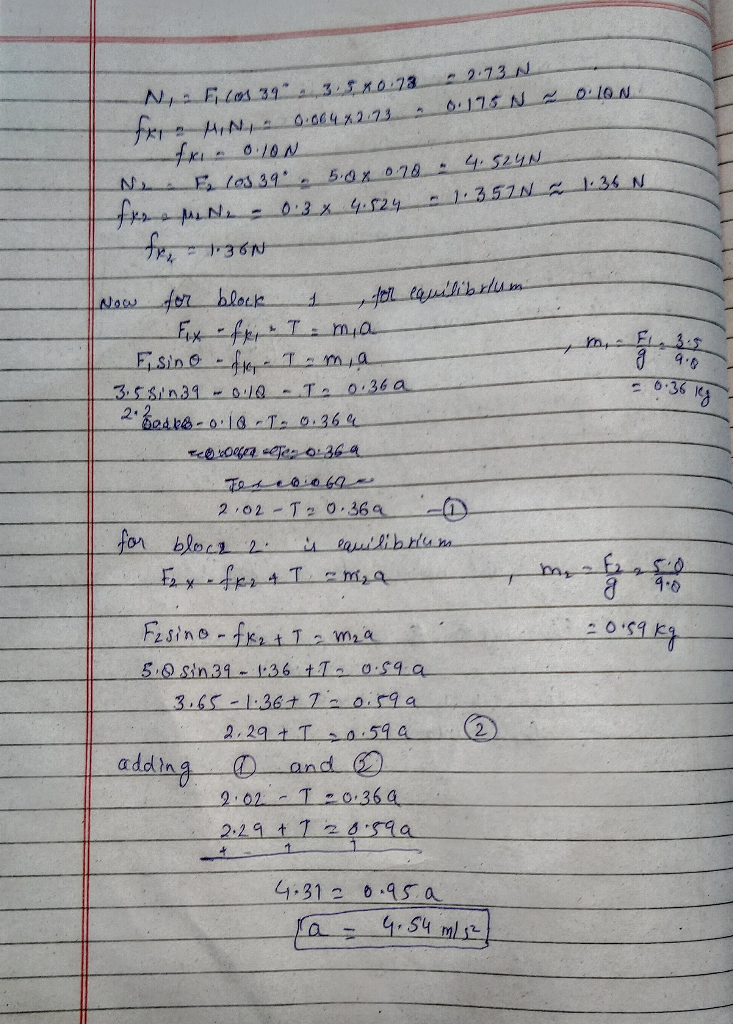 N₁ = F₁ cos 39° = 3.5 × 0.78 = 2.73 N
fk₁ = μ₁N₁ = 0.064 × 2.73 = 0.175 N ≈ 0.18 N
fk₁ = 0.18 N
N₂ = F₂ cos 39° = 5.8 × 0.78 = 4.524 N
fk₂ = μ₂N₂ = 0.3 × 4.524 = 1.357 N ≈ 1.36 N
fk₂ = 1.36 N
Now for block 1, for equilibrium
F₁x - fk₁ - T = m₁a
F₁ sin θ - fk₁ - T = m₁a , m₁ = F₁/g = 3.5/9.8
3.5 sin 39 - 0.18 - T = 0.36 a = 0.36 kg
2.2 - 0.18 - T = 0.36 a
2.02 - T = 0.36 a —①
for block 2. is equilibrium
F₂x - fk₂ + T = m₂a , m₂ = F₂/g = 5.8/9.8
F₂ sin θ - fk₂ + T = m₂a = 0.59 kg
5.8 sin 39 - 1.36 + T = 0.59 a
3.65 - 1.36 + T = 0.59 a
2.29 + T = 0.59 a ②
adding ① and ②
2.02 - T = 0.36 a
2.29 + T = 0.59 a
+ + +
4.31 = 0.95 a
a = 4.54 m/s²